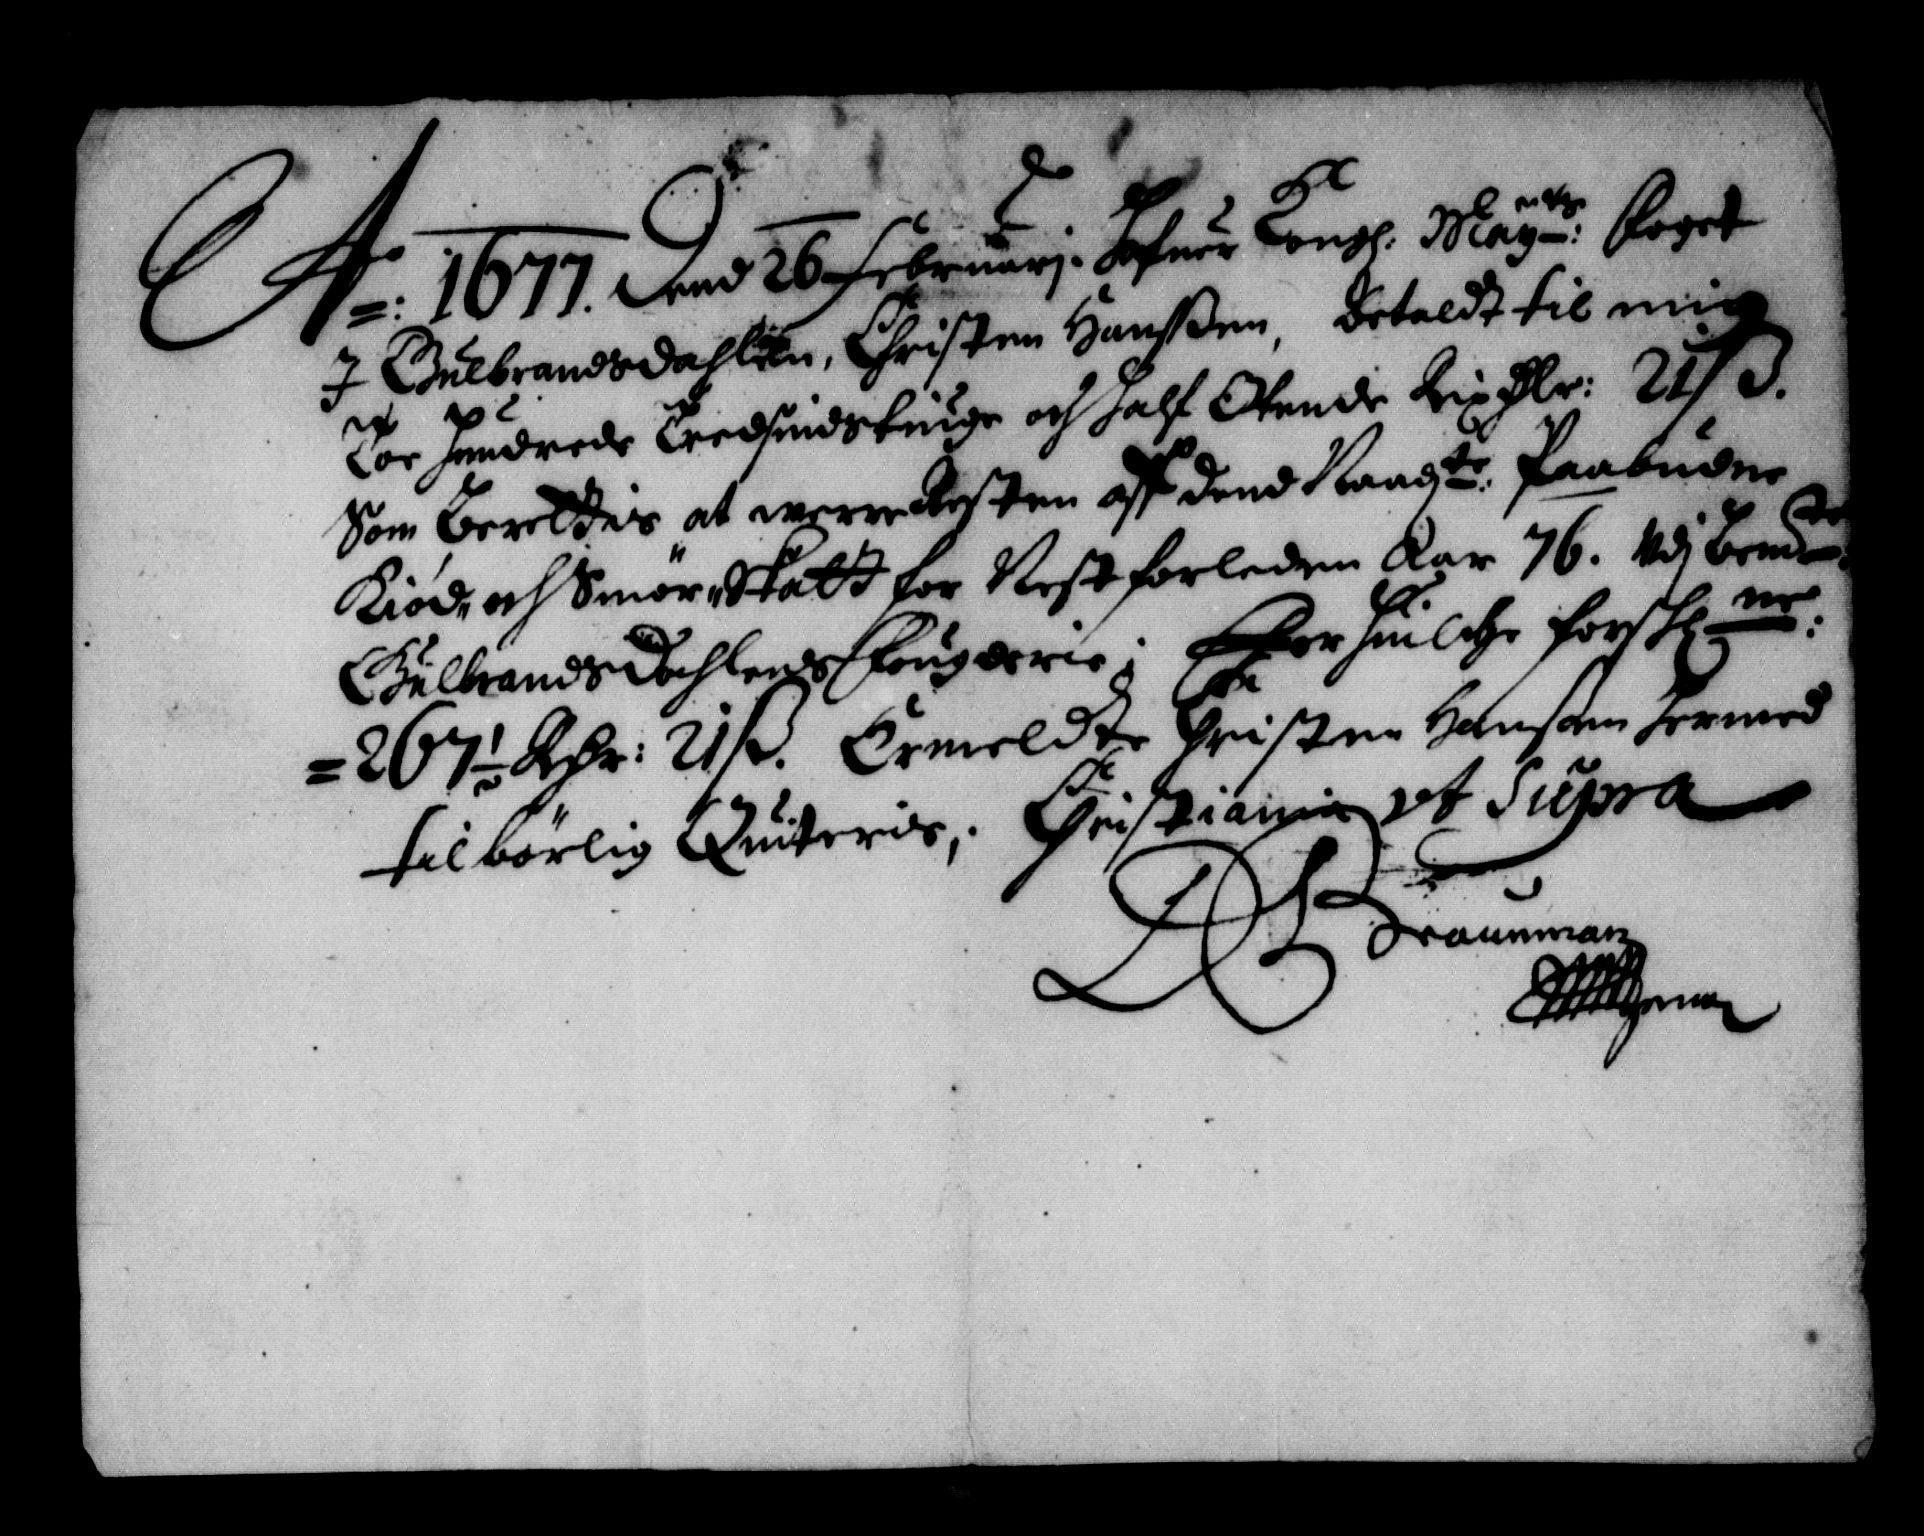 Ao: 1677. Dend 26 Februarij. Hafuer Kongl: Maytz: Foget
J Gulbrandsdahlen, Christen Hanssen, Betaldt til mig
Toe Hundrede Tredsindstiuge och Half Ottende Rixdlr: 21 ß.
Som Bereldtis at werre Resten aff dend Naadte: Paabudne
Kiød- och Smør-Skatt for Nestforleden Aar 76. Udj Bemte:
Gulbrandsdahlens Fougderie; For Huilche forschne:
= 267½ Rdr: 21 ß. Ermeldte Christen Hanssen Hermed
tilbørlig Quiteris; Christiania ut Supra
D Braunman